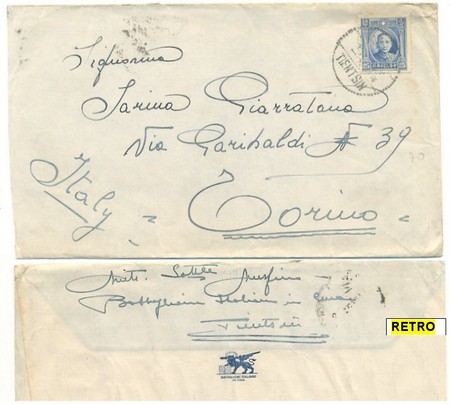 TIENTSIN
Signorina
Sarina Giarratana
Via Garibaldi N 39
Torino
Italy
70
Battaglione Italiano in Cina
Tientsin
RETRO
BATTAGLIONE ITALIANO
IN CINA